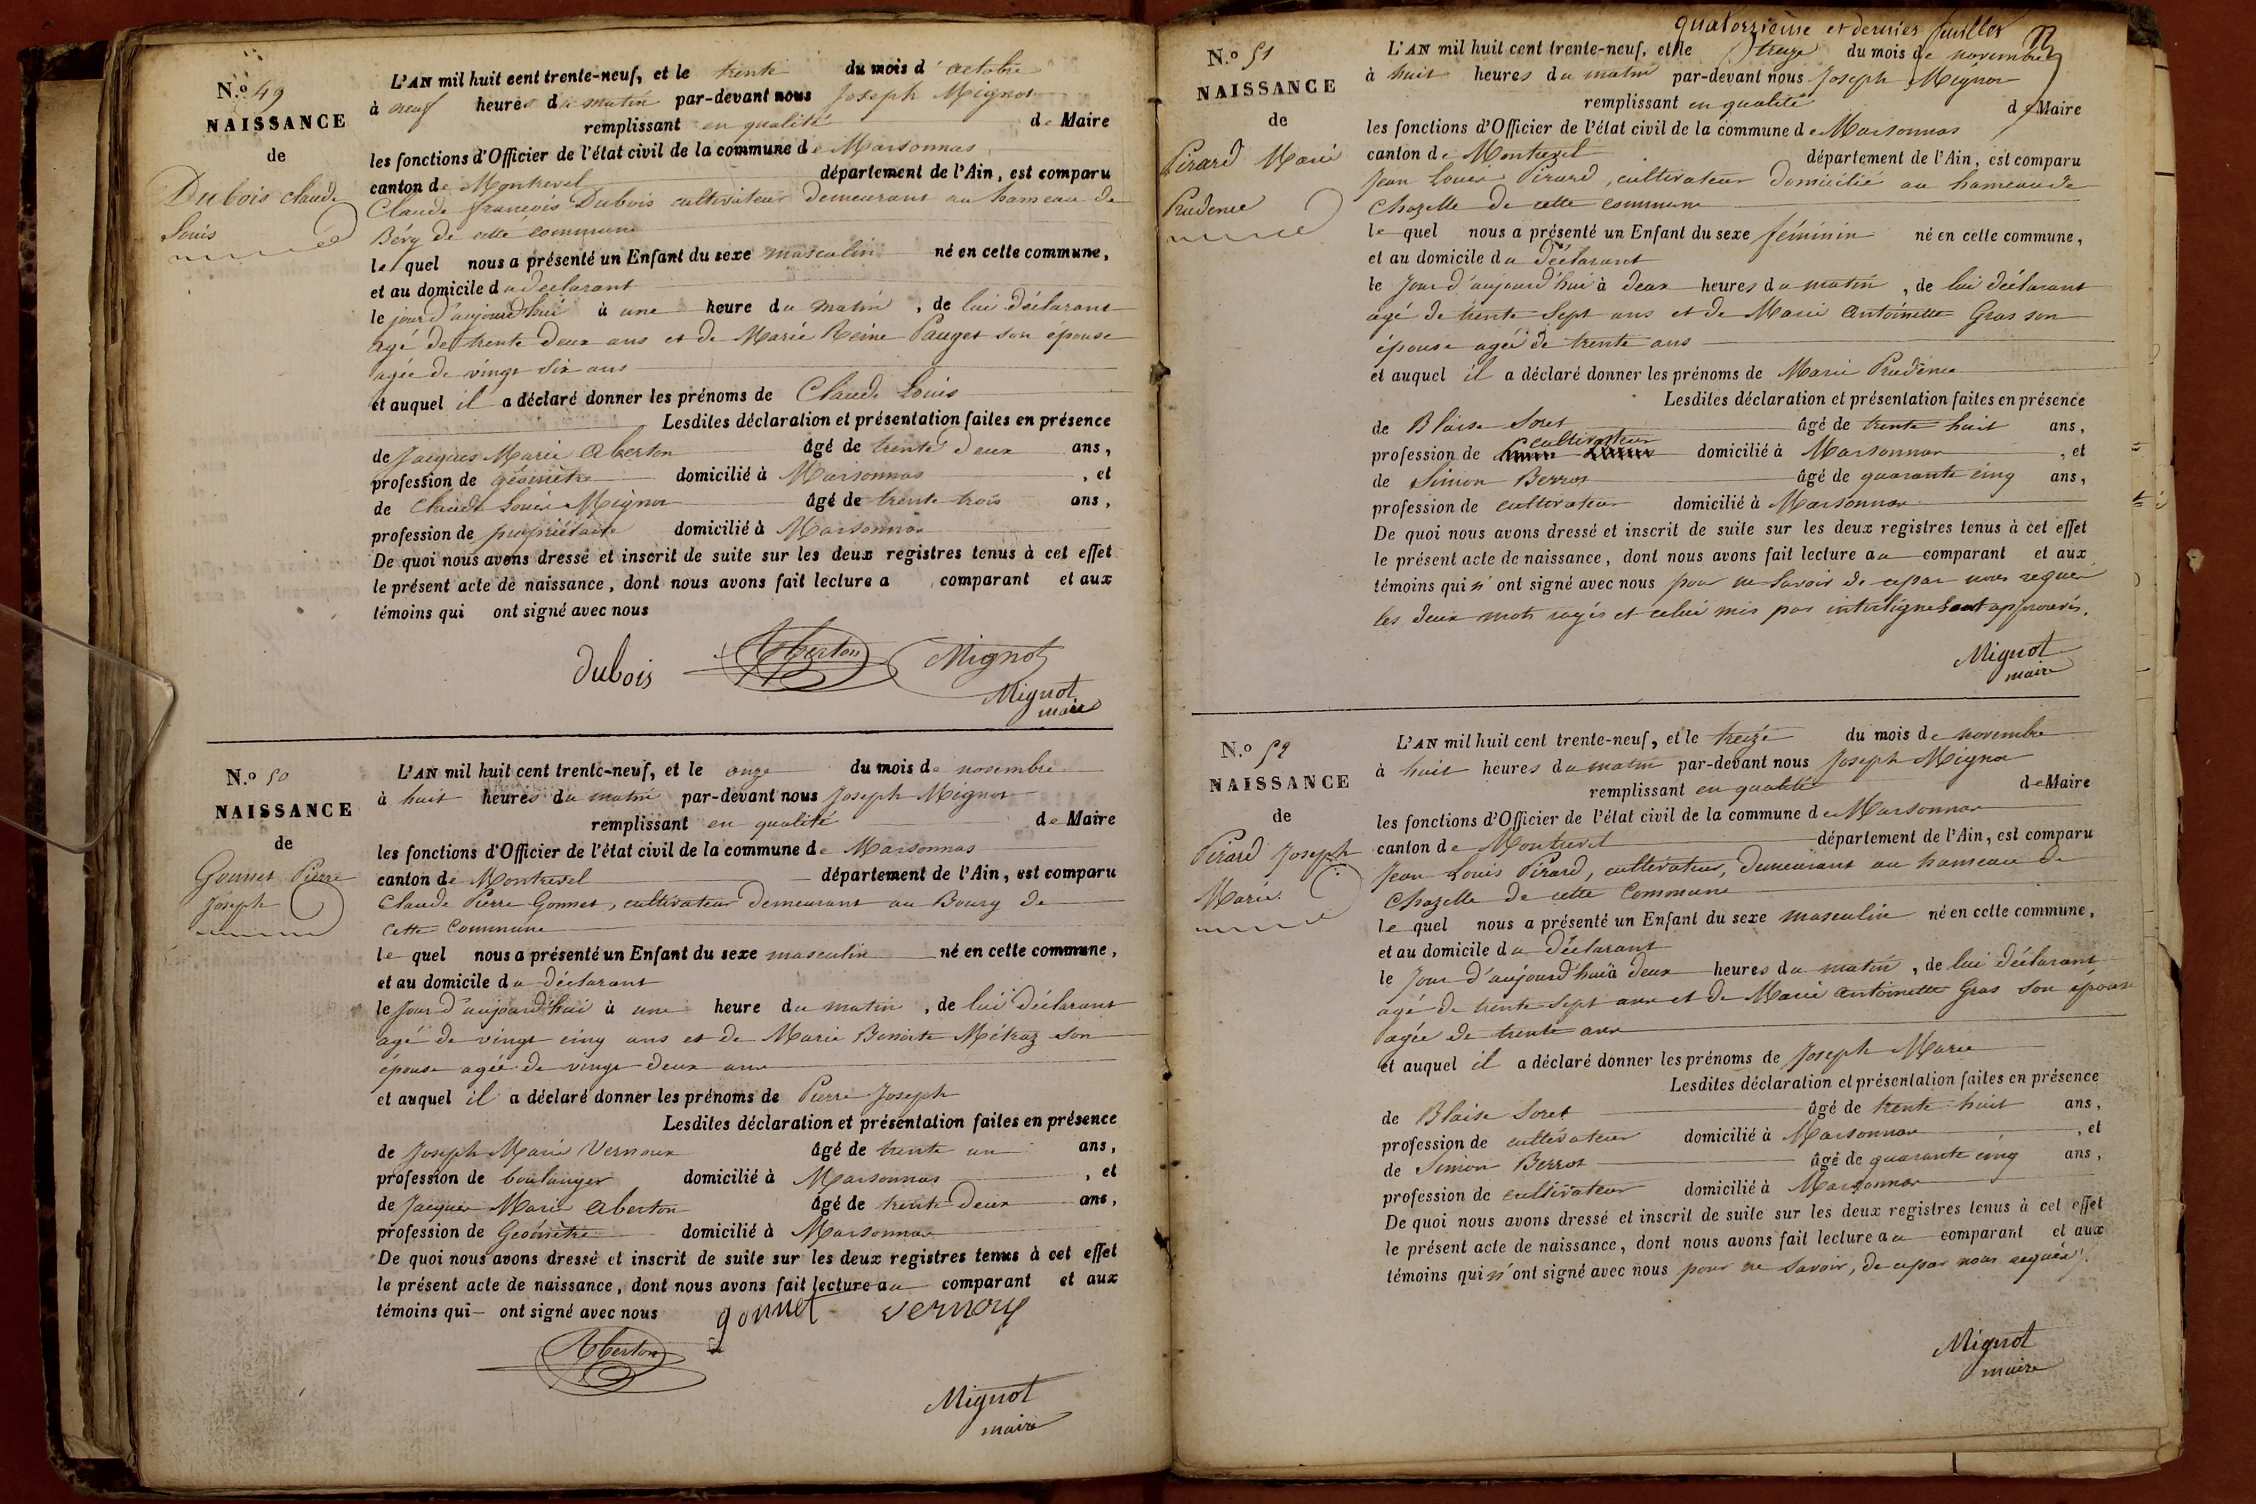 N.o 49
NAISSANCE
de
Dubois Claude
Louis
L'AN mil huit cent trente-neuf, et le trente du mois d'octobre
à neuf heures du matin par-devant nous Joseph Mignot
remplissant en qualité de Maire
les fonctions d'Officier de l'état civil de la commune de Marsonnas
canton de Montrevel département de l'Ain, est comparu
Claude françois Dubois cultivateur demeurant au hameau de
Béry de cette commune
le quel nous a présenté un Enfant du sexe masculin né en cette commune,
et au domicile du déclarant
le jour d'aujourd'hui à une heure du matin, de lui déclarant
agé de trente deux ans et de Marie Reine Pauget son épouse
agée de vingt six ans
et auquel il a déclaré donner les prénoms de Claude Louis
Lesdites déclaration et présentation faites en présence
de Jacques Marie Aberton âgé de trente deux ans,
profession de géomètre domicilié à Marsonnas, et
de Claude Louis Mignot âgé de trente trois ans,
profession de propriétaire domicilié à Marsonnas
De quoi nous avons dressé et inscrit de suite sur les deux registres tenus à cet effet
le présent acte de naissance, dont nous avons fait lecture a comparant et aux
témoins qui ont signé avec nous
Dubois Aberton Mignot
Mignot
maire
N.o 50
NAISSANCE
de
Gonnet Pierre
Joseph
L'AN mil huit cent trente-neuf, et le onze du mois de novembre
à huit heures du matin par-devant nous Joseph Mignot
remplissant en qualité de Maire
les fonctions d'Officier de l'état civil de la commune de Marsonnas
canton de Montrevel département de l'Ain, est comparu
Claude Pierre Gonnet, cultivateur demeurant au Bourg de
cette Commune
le quel nous a présenté un Enfant du sexe masculin né en cette commune,
et au domicile du déclarant
le jour d'aujourd'hui à une heure du matin, de lui déclarant
agé de vingt cinq ans et de Marie Benoite Métraz son
épouse agée de vingt deux ans
et auquel il a déclaré donner les prénoms de Pierre Joseph
Lesdites déclaration et présentation faites en présence
de Joseph Marie Vernoux âgé de trente un ans,
profession de boulanger domicilié à Marsonnas, et
de Jacques Marie Aberton âgé de trente deux ans,
profession de Géomètre domicilié à Marsonnas
De quoi nous avons dressé et inscrit de suite sur les deux registres tenus à cet effet
le présent acte de naissance, dont nous avons fait lecture au comparant et aux
témoins qui ont signé avec nous gonnet vernoux
Aberton
Mignot
maire
quatorzième et dernier feuillet
N.o 51
NAISSANCE
de
Pirard Marie
Prudence
L'AN mil huit cent trente-neuf, et le treize du mois de novembre
à huit heures du matin par-devant nous Joseph Mignot
remplissant en qualité de Maire
les fonctions d'Officier de l'état civil de la commune de Marsonnas
canton de Montrevel département de l'Ain, est comparu
Jean Louis Pirard, cultivateur domicilié au hameau de
Chazelle de cette commune
le quel nous a présenté un Enfant du sexe féminin né en cette commune,
et au domicile du déclarant
le Jour d'aujourd'hui à deux heures du matin, de lui déclarant
agé de trente Sept ans et de Marie antoinette Gras son
épouse agée de trente ans
et auquel il a déclaré donner les prénoms de Marie Prudence
Lesdites déclaration et présentation faites en présence
de Blaise Soret âgé de trente huit ans,
profession de cultivateur domicilié à Marsonnas, et
de Simon Berrot âgé de quarante cinq ans,
profession de cultivateur domicilié à Marsonnas
De quoi nous avons dressé et inscrit de suite sur les deux registres tenus à cet effet
le présent acte de naissance, dont nous avons fait lecture au comparant et aux
témoins qui n'ont signé avec nous pour ne Savoir de ce par nous requis
les deux mots rayés et celui mis par interligne sont approuvés.
Mignot
maire
N.o 52
NAISSANCE
de
Pirard Joseph
Marie
L'AN mil huit cent trente-neuf, et le treize du mois de novembre
à huit heures du matin par-devant nous Joseph Mignot
remplissant en qualité de Maire
les fonctions d'Officier de l'état civil de la commune de Marsonnas
canton de Montrevel département de l'Ain, est comparu
Jean Louis Pirard, cultivateur, demeurant au hameau de
Chazelle de cette Commune
le quel nous a présenté un Enfant du sexe masculin né en cette commune,
et au domicile du Déclarant
le Jour d'aujourd'hui à deux heures du matin, de lui déclarant
agé de trente Sept ans et de Marie antoinette Gras son épouse
agée de trente ans
et auquel il a déclaré donner les prénoms de Joseph Marie
Lesdites déclaration et présentation faites en présence
de Blaise Soret âgé de trente huit ans,
profession de cultivateur domicilié à Marsonnas, et
de Simon Berrot âgé de quarante cinq ans,
profession de cultivateur domicilié à Marsonnas
De quoi nous avons dressé et inscrit de suite sur les deux registres tenus à cet effet
le présent acte de naissance, dont nous avons fait lecture au comparant et aux
témoins qui n'ont signé avec nous pour ne Savoir, de ce par nous requis.
Mignot
maire